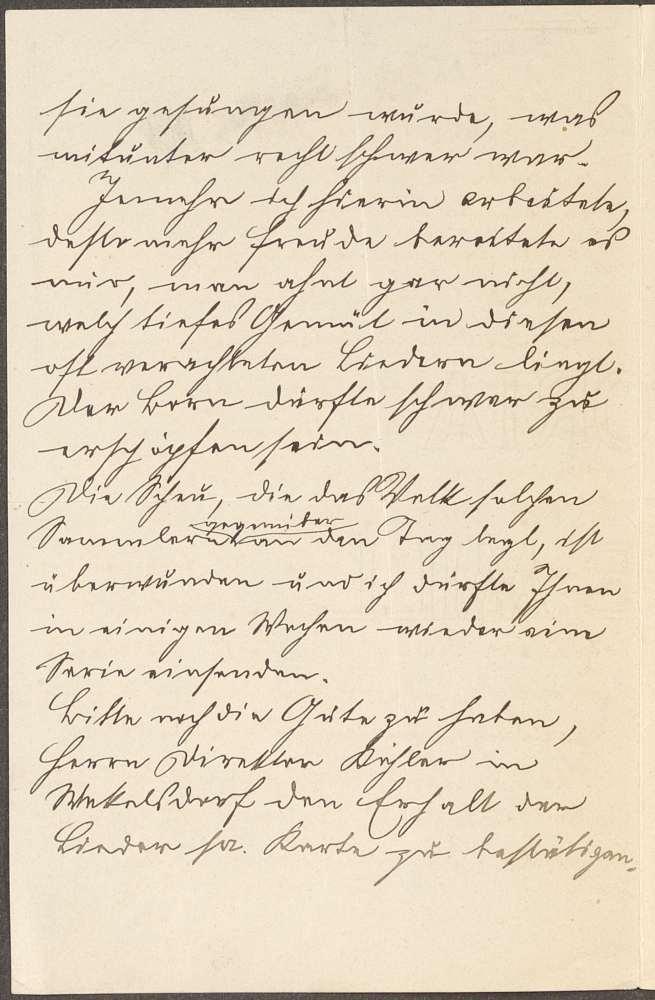 sie gesungen wurde, was
mitunter recht schwer war.
Jemehr ich hierin arbeitete,
desto mehr Freude bereitete es
mir, man ahnt gar nicht,
welch tiefes Gemüt in diesen
oft verachteten Liedern liegt.
Der Born dürfte schwer zu
erschöpfen sein.
Die Scheu, die das Volk solchen
gegenüber
Sammlern an den Tag legt, ist
überwunden und ich dürfte Ihnen
in einigen Wochen wieder eine
Serie einsenden.
Bitte noch die Güte zu haben,
Herrn Direktor Köhler in
Wekelsdorf den Erhalt der
Lieder pr. Karte zu bestätigen.